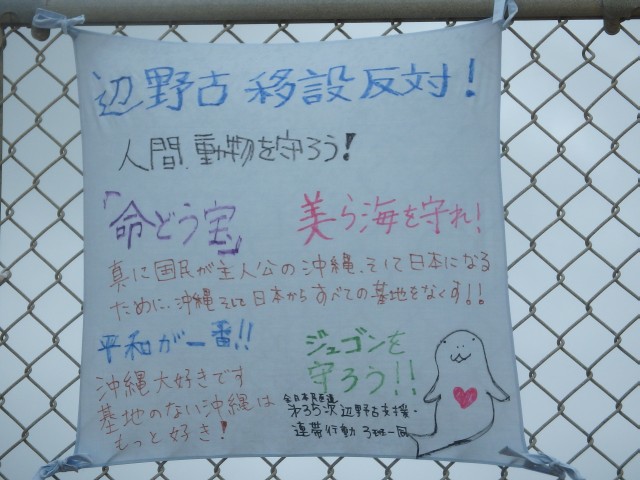 辺野古移設反対!
人間、動物を守ろう!
「命どう宝」
美ら海を守れ!
真に国民が主人公の沖縄、そして日本になる
ために、沖縄そして日本からすべての基地をなくす!!
平和が一番!!
沖縄大好きです
基地のない沖縄は
もっと好き!
ジュゴンを
守ろう!!
全日本民医連
第35次辺野古支援・
連帯行動 3班一同